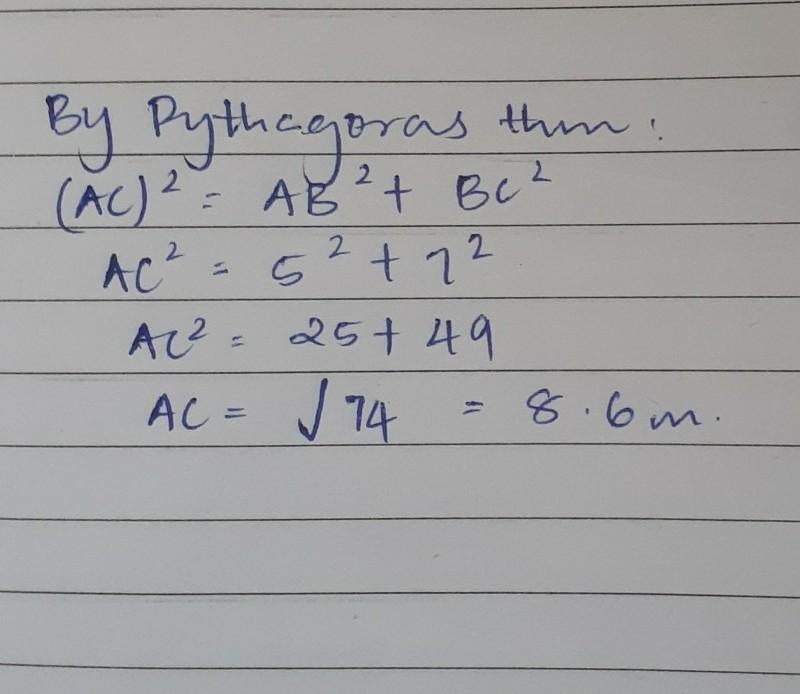 By Pythagoras thm:
(AC)² = AB² + BC²
AC² = 5² + 7²
AC² = 25 + 49
AC = √74 = 8.6m.